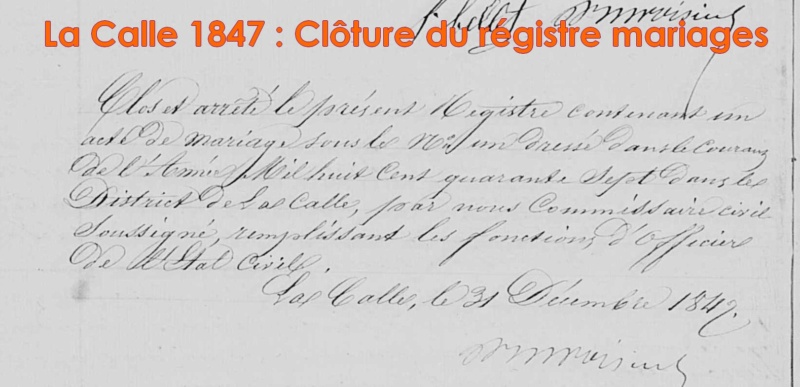 La Calle 1847 : Clôture du régistre mariages
Clos et arrêté le présent Registre contenant un
acte de mariage sous le No. un dressé dans le courant
de l'Année Mil huit Cent quarante Sept dans le
District de La Calle, par nous Commissaire civil
Soussigné, remplissant les fonctions d'Officier
de l'Etat civil.
La Calle, le 31 Décembre 1847.